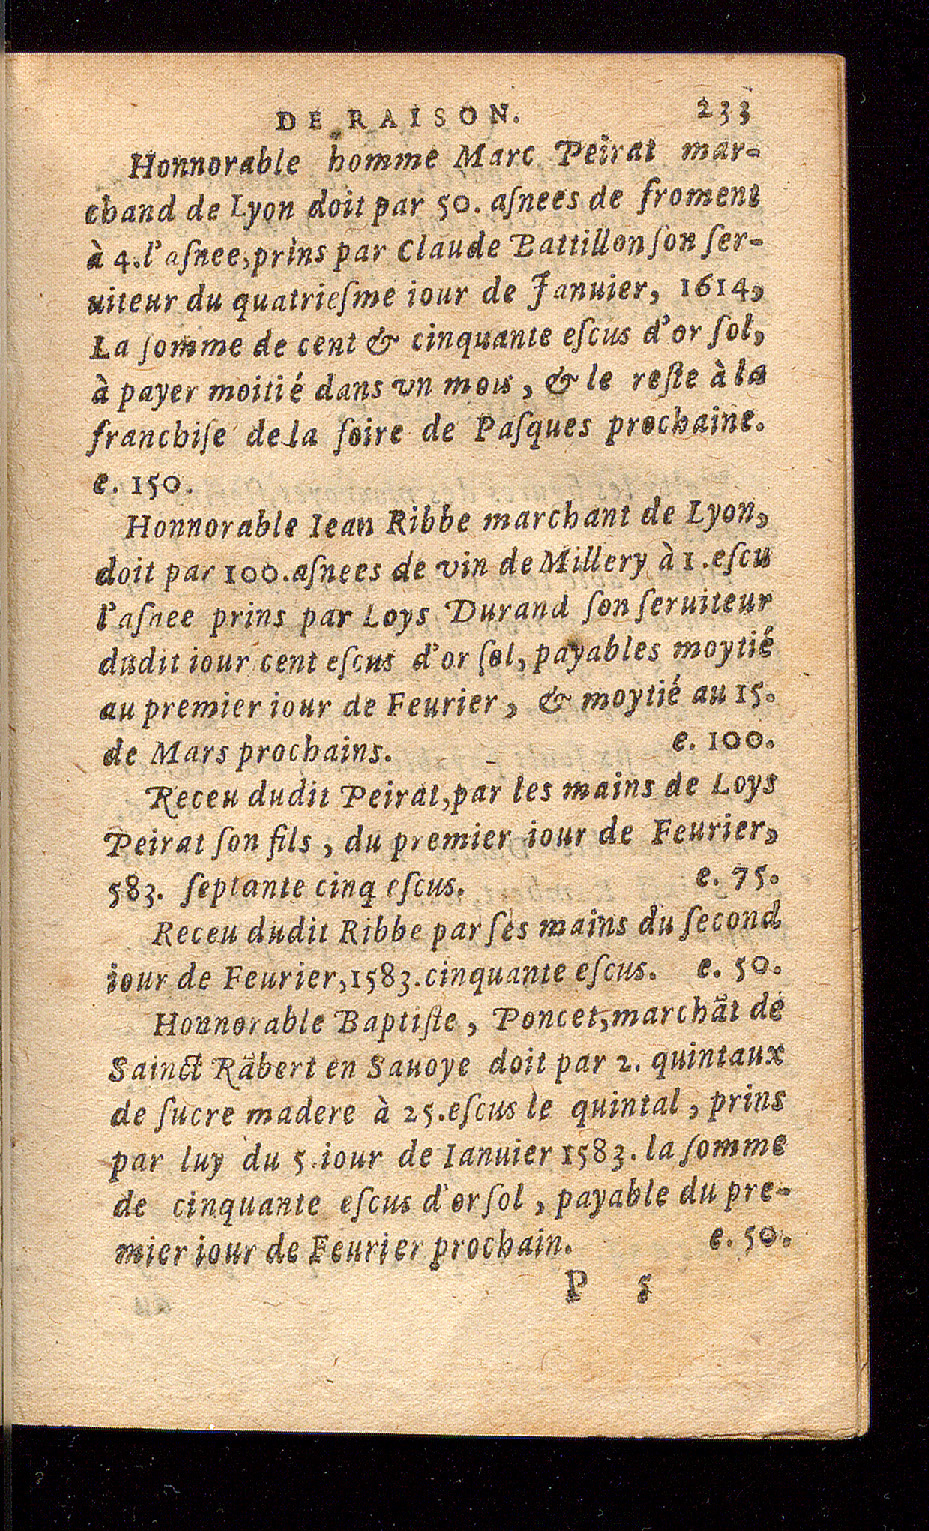 DE RAISON. 233
Honnorable homme Marc Peirat mar-
chand de Lyon doit par 50. aſnees de froment
à 4. l'aſnee, prins par Claude Battillon ſon ſer-
uiteur du quatrieſme iour de Januier, 1614,
La ſomme de cent & cinquante eſcus d'or ſol,
à payer moitié dans vn mois, & le reſte à la
franchiſe de la foire de Paſques prochaine.
e. 150.
Honnorable Iean Ribbe marchant de Lyon,
doit par 100. aſnees de vin de Millery à 1. eſcu
l'aſnee prins par Loys Durand ſon ſeruiteur
dudit iour cent eſcus d'or ſol, payables moytié
au premier iour de Feurier, & moytié au 15.
de Mars prochains. e. 100.
Receu dudit Peirat, par les mains de Loys
Peirat ſon fils, du premier iour de Feurier,
583. ſeptante cinq eſcus. e. 75.
Receu dudit Ribbe par ſes mains du ſecond
iour de Feurier, 1583. cinquante eſcus. e. 50.
Honnorable Baptiſte, Poncet, marchãt de
Sainct Rãbert en Sauoye doit par 2. quintaux
de ſucre madere à 25. eſcus le quintal, prins
par luy du 5. iour de Ianuier 1583. la ſomme
de cinquante eſcus d'or ſol, payable du pre-
mier iour de Feurier prochain. e. 50.
P 5